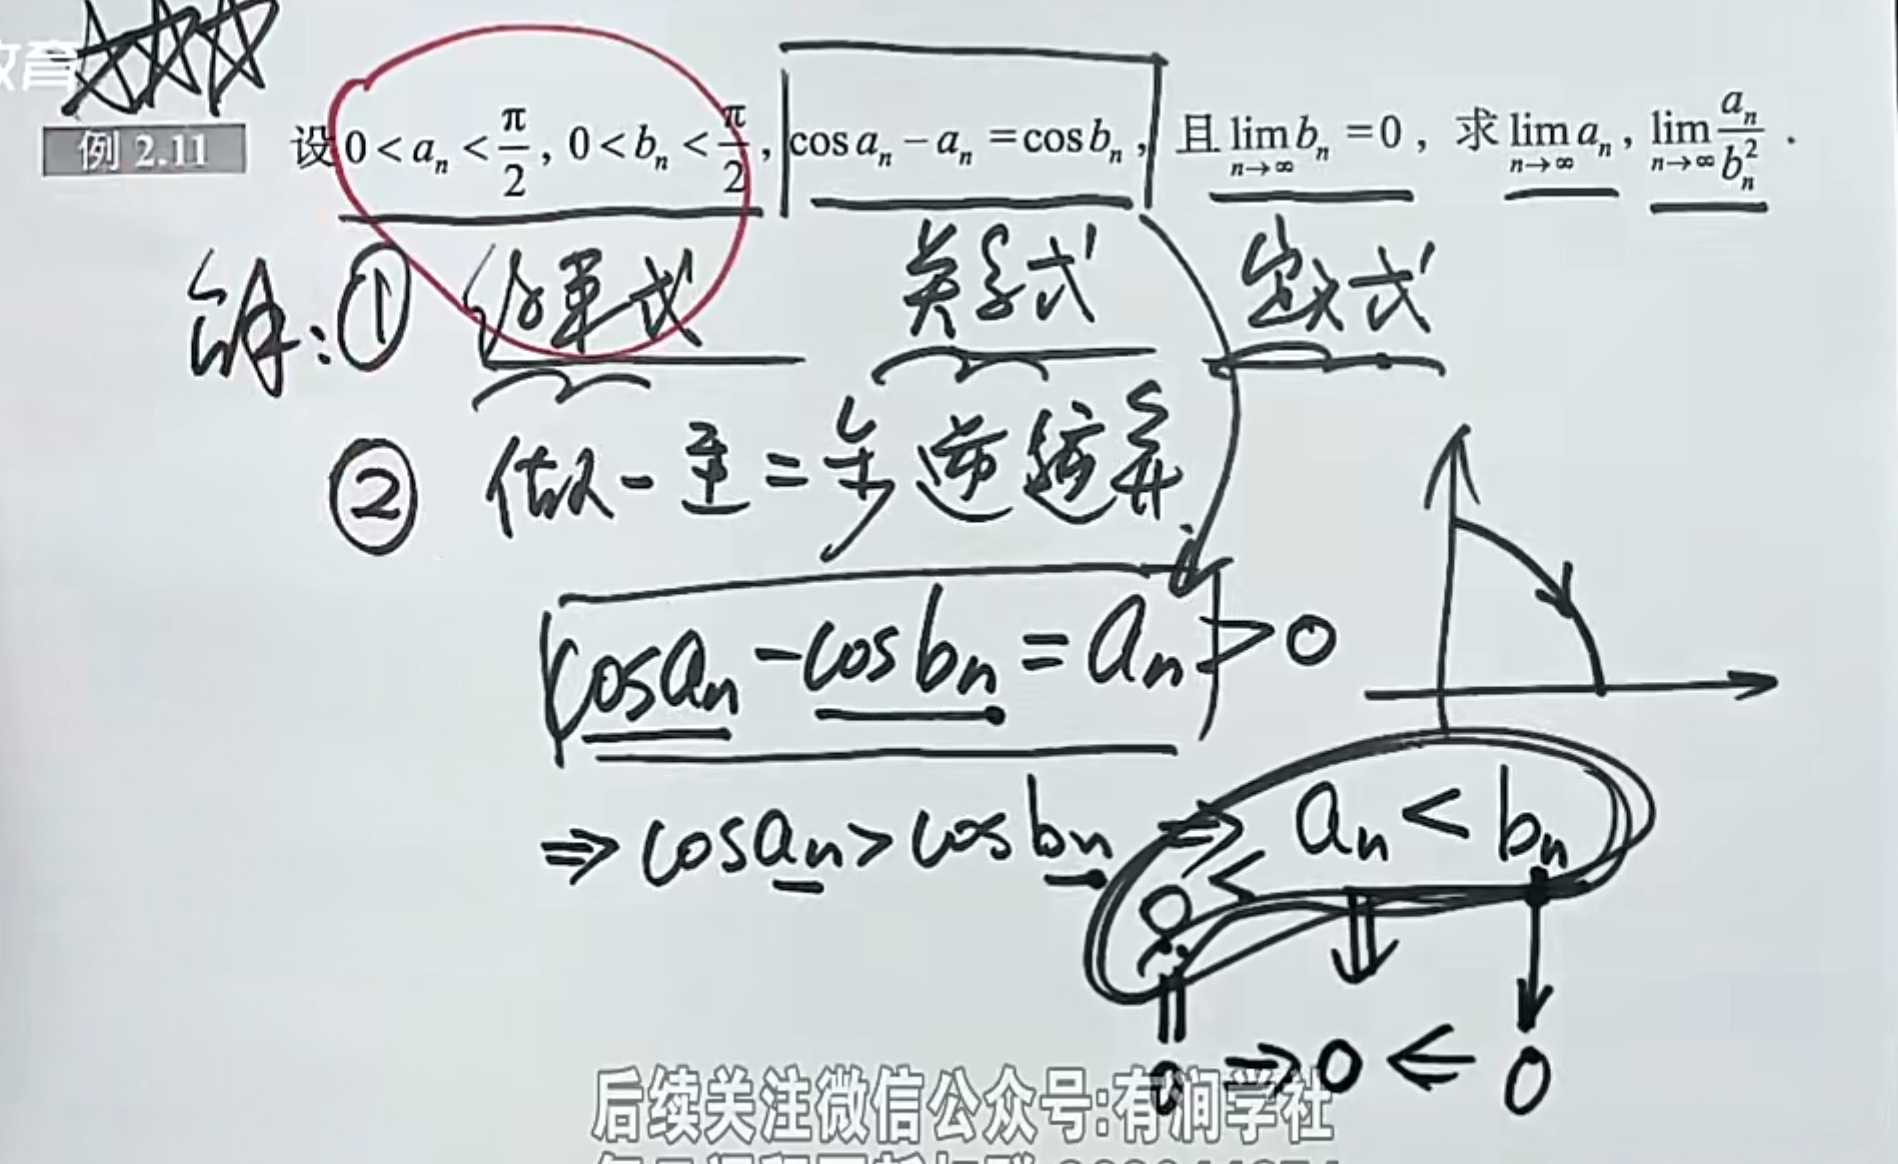 教育
例 2.11 设 0 < aₙ < π/2, 0 < bₙ < π/2, cos aₙ − aₙ = cos bₙ, 且 lim_{n→∞} bₙ = 0, 求 lim_{n→∞} aₙ, lim_{n→∞} aₙ/bₙ².
解: ① 关系式 定义式
② 做一 = 逆
cos aₙ − cos bₙ = aₙ > 0
⇒ cos aₙ > cos bₙ ⇒ aₙ < bₙ
0 <
0 ⇒ 0 ⇐ 0
后续关注微信公众号:有润学社